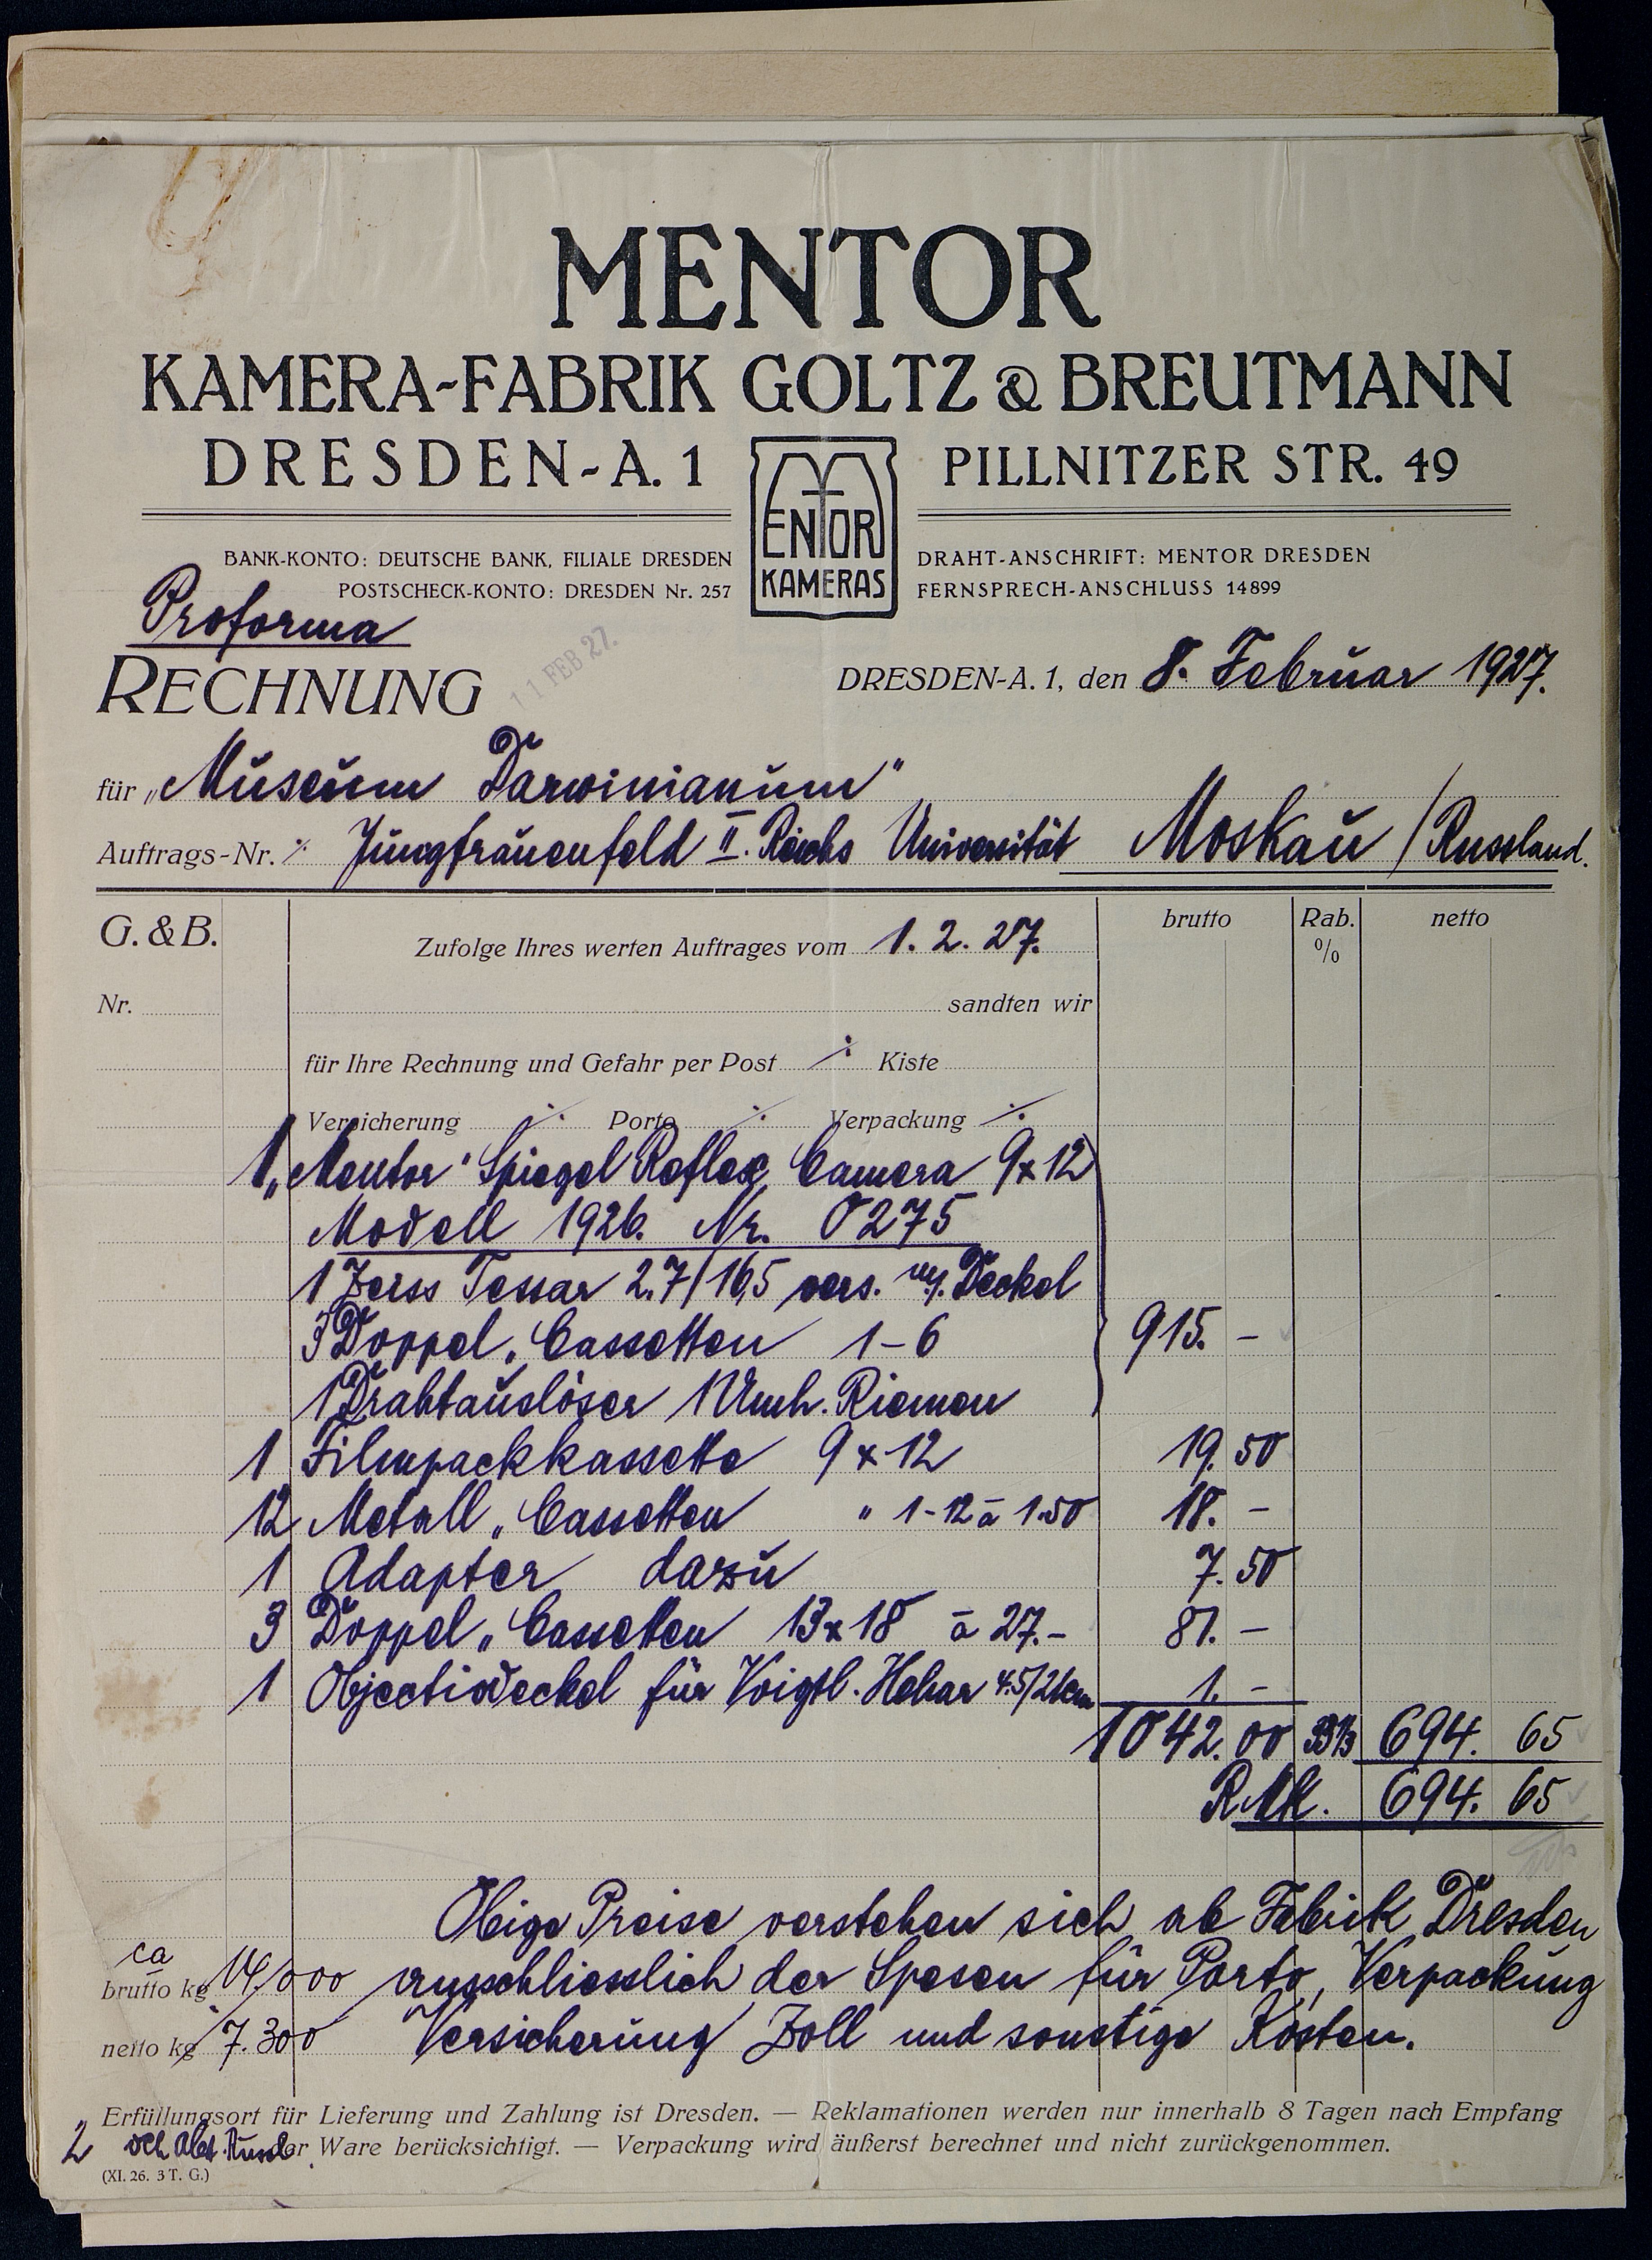 MENTOR
KAMERA-FABRIK GOLTZ & BREUTMANN
DRESDEN-A. 1 PILLNITZER STR. 49
MENTOR
KAMERAS
BANK-KONTO: DEUTSCHE BANK, FILIALE DRESDEN
POSTSCHECK-KONTO: DRESDEN Nr. 257
DRAHT-ANSCHRIFT: MENTOR DRESDEN
FERNSPRECH-ANSCHLUSS 14899
Proforma
11 FEB 27.
RECHNUNG DRESDEN-A. 1, den 8. Februar 1927.
für „Museum Darwinianum"
Auftrags-Nr. ⁒ Jungfrauenfeld II. Reichs Universität Moskau / Russland.
G. & B. Zufolge Ihres werten Auftrages vom 1. 2. 27. brutto Rab. % netto
Nr. sandten wir
für Ihre Rechnung und Gefahr per Post ⁒ Kiste
Versicherung ⁒ Porto ⁒ Verpackung ⁒
1 „Mentor" Spiegel Reflex Camera 9x12
Modell 1926. Nr. 0275
1 Zeiss Tessar 2.7/16,5 vers. Deckel
3 Doppel „ Cassetten 1-6 915. -
1 Drahtauslöser 1 Umh. Riemen
1 Filmpackkassette 9x12 19. 50
12 Metall „ Cassetten " 1-12 à 1.50 18. -
1 Adapter dazu 7. 50
3 Doppel „ Cassetten 13x18 à 27.- 81. -
1 Objectivdeckel für Voigtl. Heliar 4.5/21cm 1. -
1042. 00 33⅓ 694. 65
RMk. 694. 65
Obige Preise verstehen sich ab Fabrik Dresden
ca
brutto kg 14,000 ausschliesslich der Spesen für Porto, Verpackung
netto kg 7.300 Versicherung Zoll und sonstige Kosten.
Erfüllungsort für Lieferung und Zahlung ist Dresden. — Reklamationen werden nur innerhalb 8 Tagen nach Empfang
der Ware berücksichtigt. — Verpackung wird äußerst berechnet und nicht zurückgenommen.
(XI. 26. 3 T. G.)